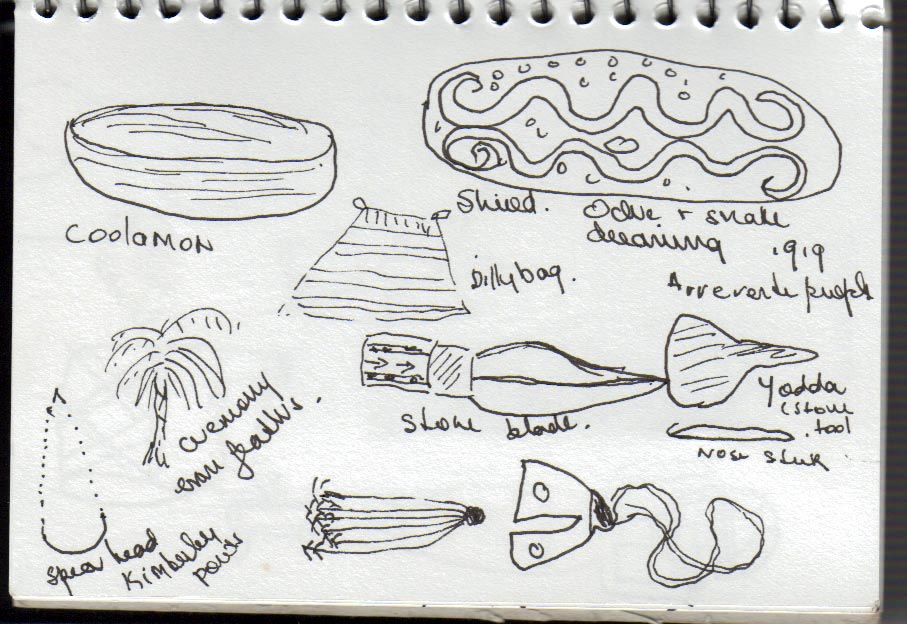 Coolamon
Shield.
Ochre + snake
dreaming
1919
Arrerente people
Dillybag.
Stone blade.
Yodda
(stone
tool
Nose stick
ceremony
emu feathers.
spear head
Kimberley
point